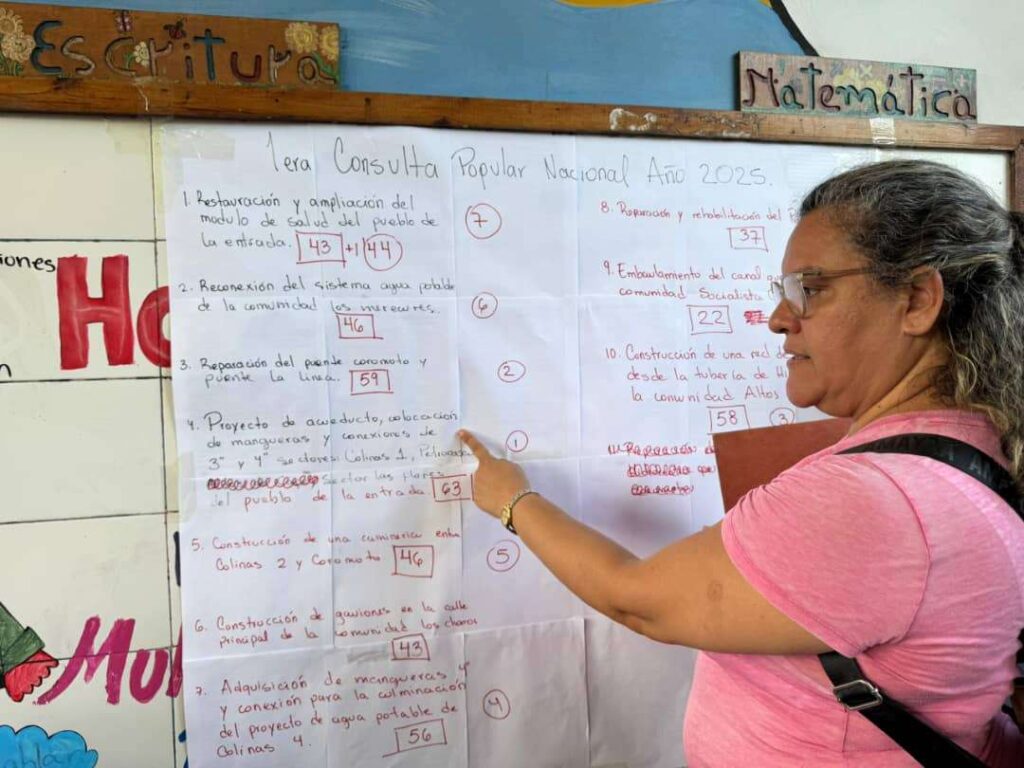 Escritura
Matemática
1era Consulta Popular Nacional Año 2025.
1. Restauración y ampliación del
modulo de salud del pueblo de
la entrada. 43 +1 44
7
2. Reconexión del sistema agua potable
de la comunidad los merecures.
46
6
3. Reparación del puente coromoto y
puente La Linea. 59
2
4. Proyecto de acueducto, colocación
de mangueras y conexiones de
3" y 4" Sectores: Colinas 1,
Sector las flores
del pueblo de la entrada 63
1
5. Construcción de una caminería entre
Colinas 2 y Coromoto 46
5
6. Construcción de gaviones en la calle
principal de la comunidad los charos
43
7. Adquisición de mangueras 4"
y conexión para la culminación
del proyecto de agua potable de
Colinas 4. 56
4
8. Reparación y rehabilitación del
37
9. Embaulamiento del canal
comunidad Socialista
22
10. Construcción de una red de
desde la tubería de
la comunidad Altos
58 3
iones
Ho
n
Mul
ablar